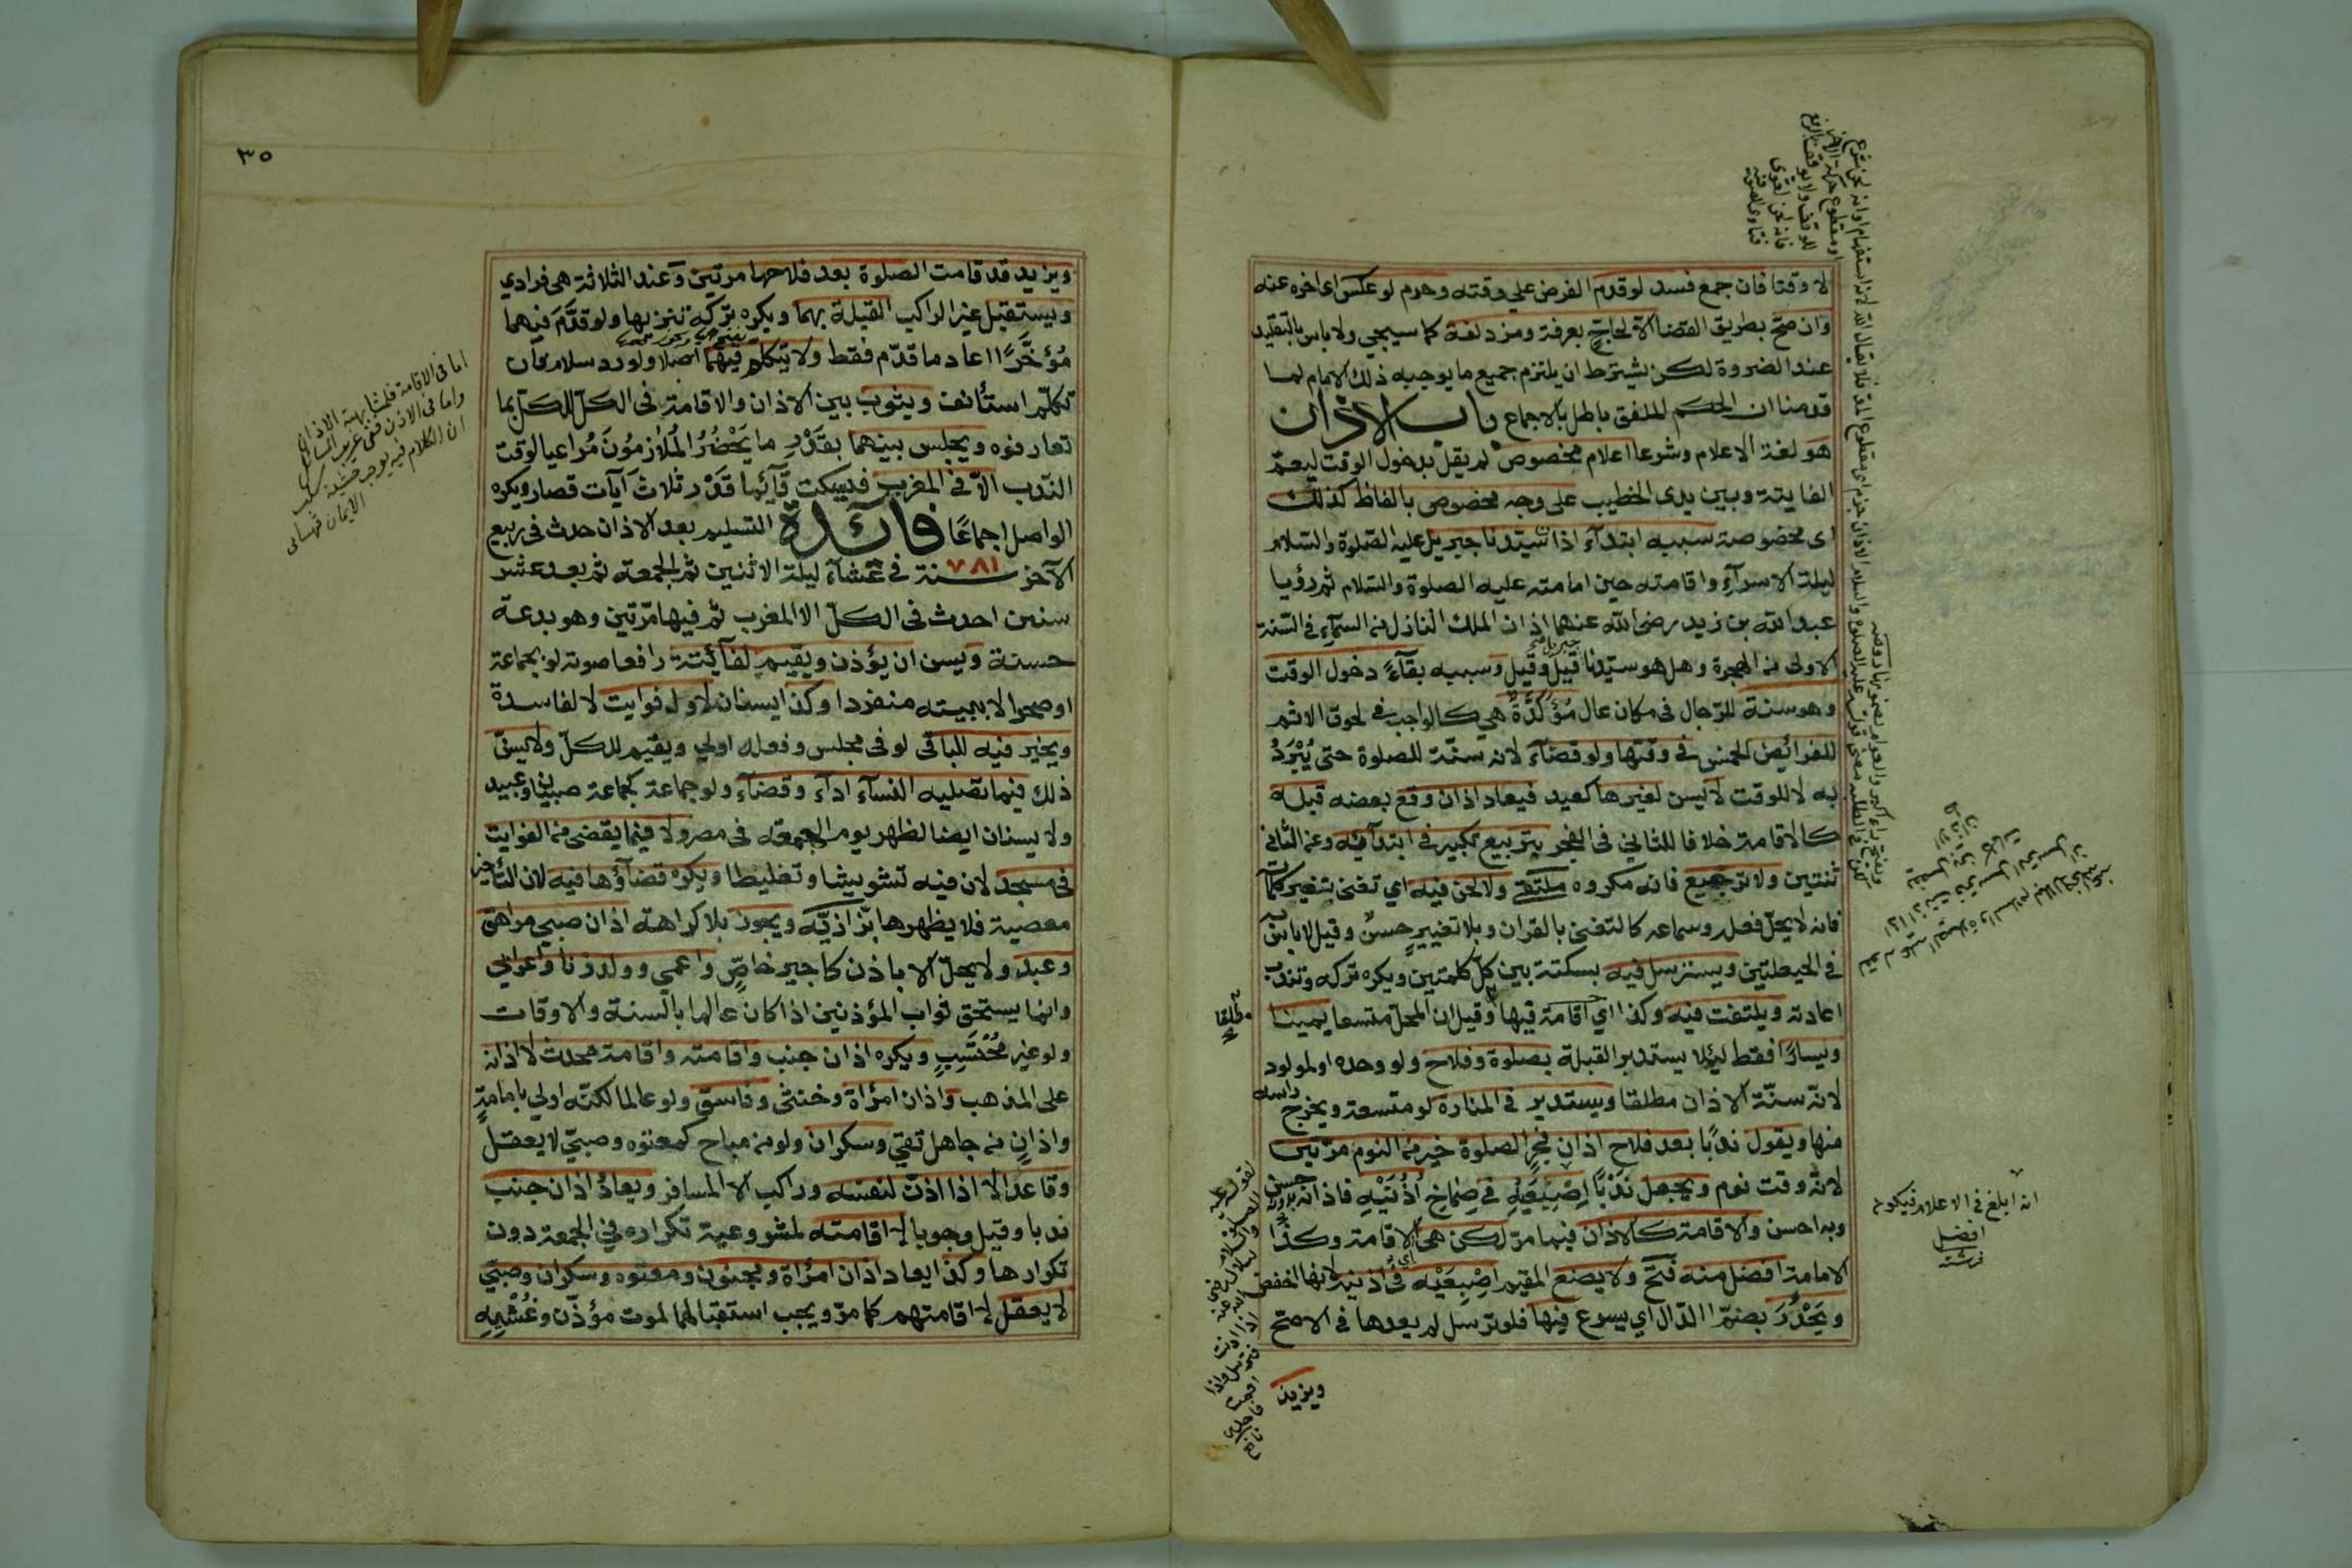 لا وقتا فان جمع فسد لو قدم الفرض على وقته وحرم لو عكس اى اخره عنه
وان صحّ بطريق القضا الا لحاجّ بعرفة ومزدلفة كما سيجي ولا باس بالتقليد
عند الضرورة لكن بشترط ان يلتزم جميع ما يوجبه ذلك الامام لما
قدمنا ان الحكم الملفق باطل بالاجماع باب الاذان
هو لغة الاعلام وشرعا اعلام مخصوص لم يقل بدخول الوقت ليعمّ
الفايتة وبين يدى الخطيب على وجه مخصوص بالفاظ كذلك
اى مخصوصة سببه ابتدآء اذان سيّدنا جبريل عليه الصّلوة والسّلام
ليلة الاسرآء واقامته حين امامته عليه الصلوة والسّلام ثم رؤيا
عبد الله بن زيد رضى الله عنهما اذان الملك النازل من السمآء في السّنة
الاولى من الهجرة وهل هو سيّدنا جبريل قيل وقيل وسببه بقآءً دخول الوقت
وهو سنة للرّجال فى مكان عال مُؤَكَّدَةٌ هي كالواجب في لحوق الاثم
للفرائض الخمس في وقتها ولو قضآء لانه سنّة للصلوة حتى يُبْرَدُ
به لا للوقت لا يسن لغيرها كعيد فيعاد اذان وقع بعضه قبله
كالاقامة خلافا للثاني فى الفجر بتربيع تكبير في ابتدآئه وعن الثانى
ثنتين ولا ترجيع فانه مكروه ملتقى ولا لحن فيه اي تغنى بتغيير كلماته
فانه لا يحلّ فعله وسماعه كالتغنى بالقران وبلا تغيير حسنٌ وقيل لا باس به
في الحيعلتين ويترسل فيه بسكتة بين كلّ كلمتين ويكره تركه وتندب
اعادته ويلتفت فيه وكذا اي اقامة فيها وقيل ان المحلّ متسعا يمينا
ويسارًا فقط ليلا يستدبر القبلة بصلوة وفلاح ولو وحده او لمولود
لانّه سنّة الاذان مطلقا ويستدير في المنارة لو متسعة ويخرج راسه
منها ويقول ندبًا بعد فلاح اذان فجر الصلوة خير من النوم مرّتين
لانّه وقت نوم ويجعل نَدْبًا اِصْبِعَيْهِ في صِمَاخِ اُذُنَيْهِ فاذانه بدونه حسن
وبه احسن والاقامة كالاذان فيما مرّ لكن هى اى الاقامة وكذا
الامامة افضل منه فتح ولا يضع المقيم اصْبِعَيْه في اذنيه لانها اخفض
ويَحْدُرُ بضمّ الدّال اي يسرع فيها فلو ترسل لم يعدها في الاصحّ
ويزيد
انه ابلغ في الاعلام فيكون
افضل
٣٥
ويزيد قد قامت الصلوة بعد فلاحها مرتين وعند الثلاثة هى فرادي
ويستقبل غير الراكب القبلة بهما ويكره تركه تنزيها ولو قدّم فيهما
مُؤخَّرًا اعاد ما قدّم فقط ولا يتكلّم فيهما اصلا ولو رد سلام فان
تكلّم استأنف ويثوب بين الاذان والاقامة فى الكلّ للكلّ بما
تعارفوه ويجلس بينهما بقَدْرِ ما يَحْضُرُ المُلَازِمُونَ مُراعيا لوقت
النّدب الاّ فى المغرب فيسكت قآئما قَدْر ثلاث آيات قصار ويكره
الواصل اجماعًا فائدة التسليم بعد الاذان حدث فى ربيع
الآخر سنة ٧٨١ في عشآء ليلة الاثنين ثم الجمعة ثم بعد عشر
سنين احدث فى الكلّ الا المغرب ثم فيها مرّتين وهو بدعة
حسنة ويسن ان يؤذن ويقيم لفآئتة رافعا صوته لو بجماعة
او صحرا لا ببيته منفردا وكذا يسنان لاولى فوايت لا لفاسدة
ويخير فيه للباقى لو فى مجلس وفعله اولي ويقيم للكلّ ولا يسنّ
ذلك فيما تصليه النسآء ادآء وقضآء ولو جماعة كجماعة صبيان وعبيد
ولا يسنان ايضا لظهر يوم الجمعة فى مصر ولا فيما يقضى من الفوايت
فى مسجد لان فيه تشويشا وتغليطا ويكره قضآؤها فيه لان التأخير
معصية فلا يظهرها بزّازيّه ويجوز بلا كراهة اذان صبي مراهق
وعبد ولا يحلّ الا باذن كاجير خاصّ واعمي وولد زنا واعرابي
وانما يستحق ثواب المؤذنين اذا كان عالما بالسنة والاوقات
ولو غير مُحْتَسِب ويكره اذان جنب واقامته واقامة محدث لا اذانه
على المذهب واذان امرأة وخنثى وفاسق ولو عالما لكنّه اولي بامامةٍ
واذانٍ من جاهل تقيّ وسكران ولو من مباح كمعتوه وصبيّ لا يعقل
وقاعد الا اذا اذن لنفسه وراكب الا لمسافر ويعادُ اذان جنب
ندبا وقيل وجوبا لا اقامته لمشروعية تكراره في الجمعة دون
تكرارها وكذا يعاد اذان امرأة ومجنون ومعتوه وسكران وصبيّ
لا يعقل لا اقامتهم كما مرّ ويجب استقبالهما لموت مؤذّن وغُشْيِهِ
اما فى الاقامة فلشابهته الاذان